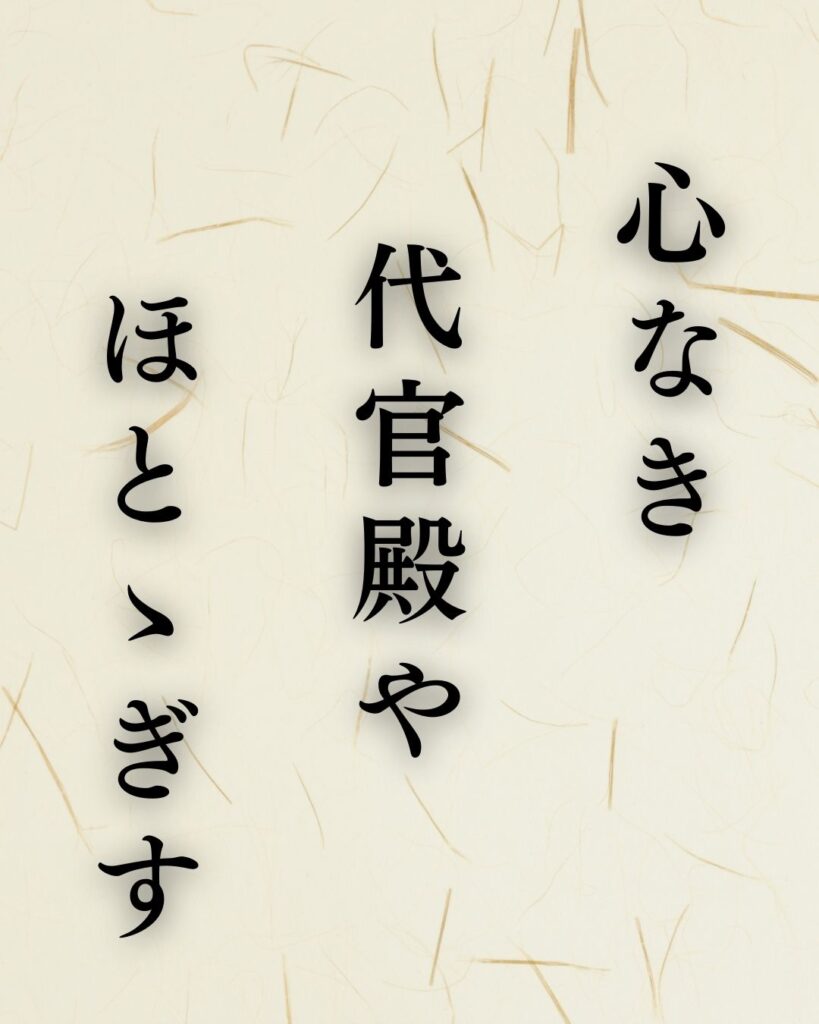 心なき
代官殿や
ほとゝぎす